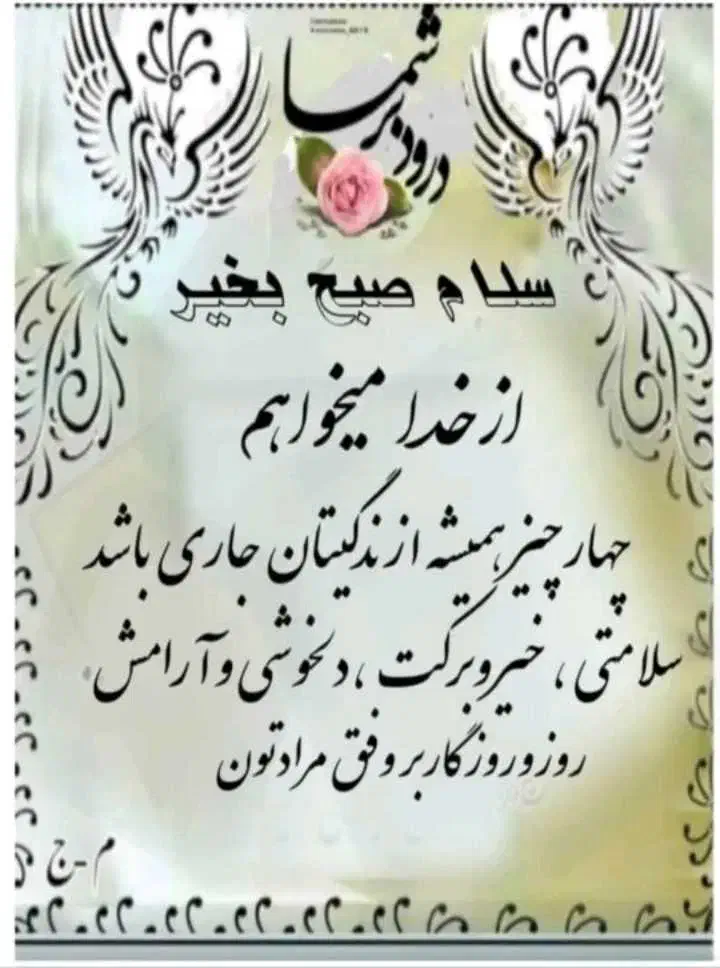 درود بر شما
سلام صبح بخیر
از خدا میخواهم
چهار چیز همیشه از زندگیتان جاری باشد
سلامتی ، خیر و برکت ، دلخوشی و آرامش
روز و روزگار بر وفق مرادتون
م-ج